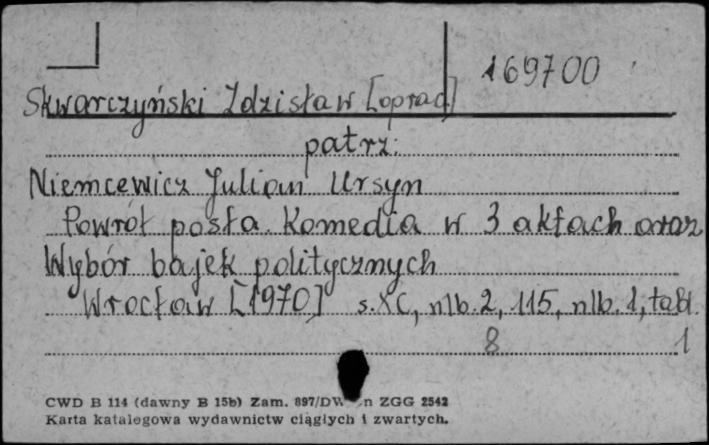 169700
Skwarczyński Zdzisław [oprac]
patrz:
Niemcewicz Julian Ursyn
Powrót posła. Komedia w 3 aktach oraz
Wybór bajek politycznych
Wrocław [1970] s. XC, nlb. 2, 115, nlb. 1, tabl.
8 1
CWD B 114 (dawny B 15b) Zam. 897/DW n ZGG 2542
Karta katalogowa wydawnictw ciągłych i zwartych.